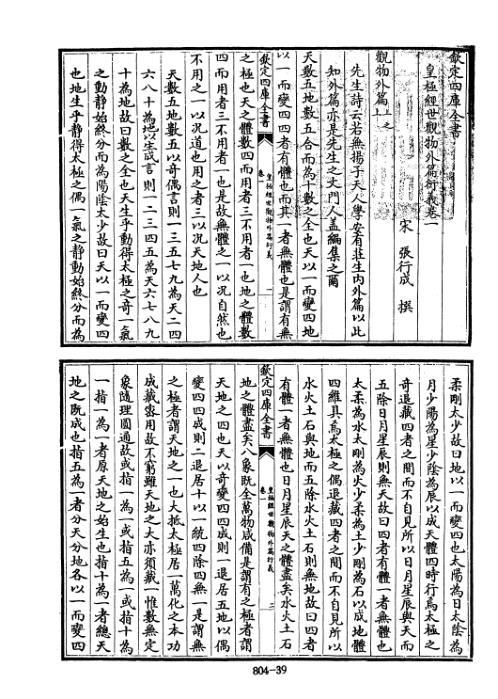 欽定四庫全書
皇極經世觀物外篇衍義卷一
宋 張行成 撰
觀物外篇上之上
先生詩云若無揚子天人學安有莊生内外篇以此
知外篇亦是先生之文門人蓋編集之爾
天數五地數五合而為十數之全也天以一而變四地
以一而變四四者有體也而其一者無體也是謂有無
之極也天之體數四而用者三不用者一也地之體數
四而用者三不用者一也是故無體之一以况自然也
不用之一以况道也用之者三以况天地人也
天數五地數五以奇偶言則一三五七九為天二四
六八十為地以生成言則一二三四五為天六七八九
十為地故曰數之全也天生乎動得太極之奇一氣
之動靜始終分而為陽陰太少故曰天以一而變四
也地生乎靜得太極之偶一氣之靜動始終分而為
欽定四庫全書
皇極經世觀物外篇衍義
卷一
一
柔剛太少故曰地以一而變四也太陽為日太陰為
月少陽為星少陰為辰以成天體四時行焉太極之
奇退藏四者之間而不自見所以日月星辰與天而
五除日月星辰則無天故曰四者有體一者無體也
太柔為水太剛為火少柔為土少剛為石以成地體
四維具焉太極之偶退藏四者之間而不自見所以
水火土石與地而五除水火土石則無地故曰四者
有體一者無體也日月星辰天之體盡矣水火土石
地之體盡矣八象既全萬物咸備是謂有之極者謂
天地之四也天以奇變四四成則一退居五地以偶
變四四成則二退居十以一統四除四無一是謂無
之極者謂天地之一也大抵太極居一萬化之本功
成藏密用故不窮雖天地之大亦須藏一惟數無定
象隨理圓通故或指一為一或指五為一或指十為
一指一為一者原天地之始生也指十為一者總天
地之既成也指五為一者分天分地各以一而變四
欽定四庫全書
皇極經世觀物外篇衍義
卷一
二
804-39